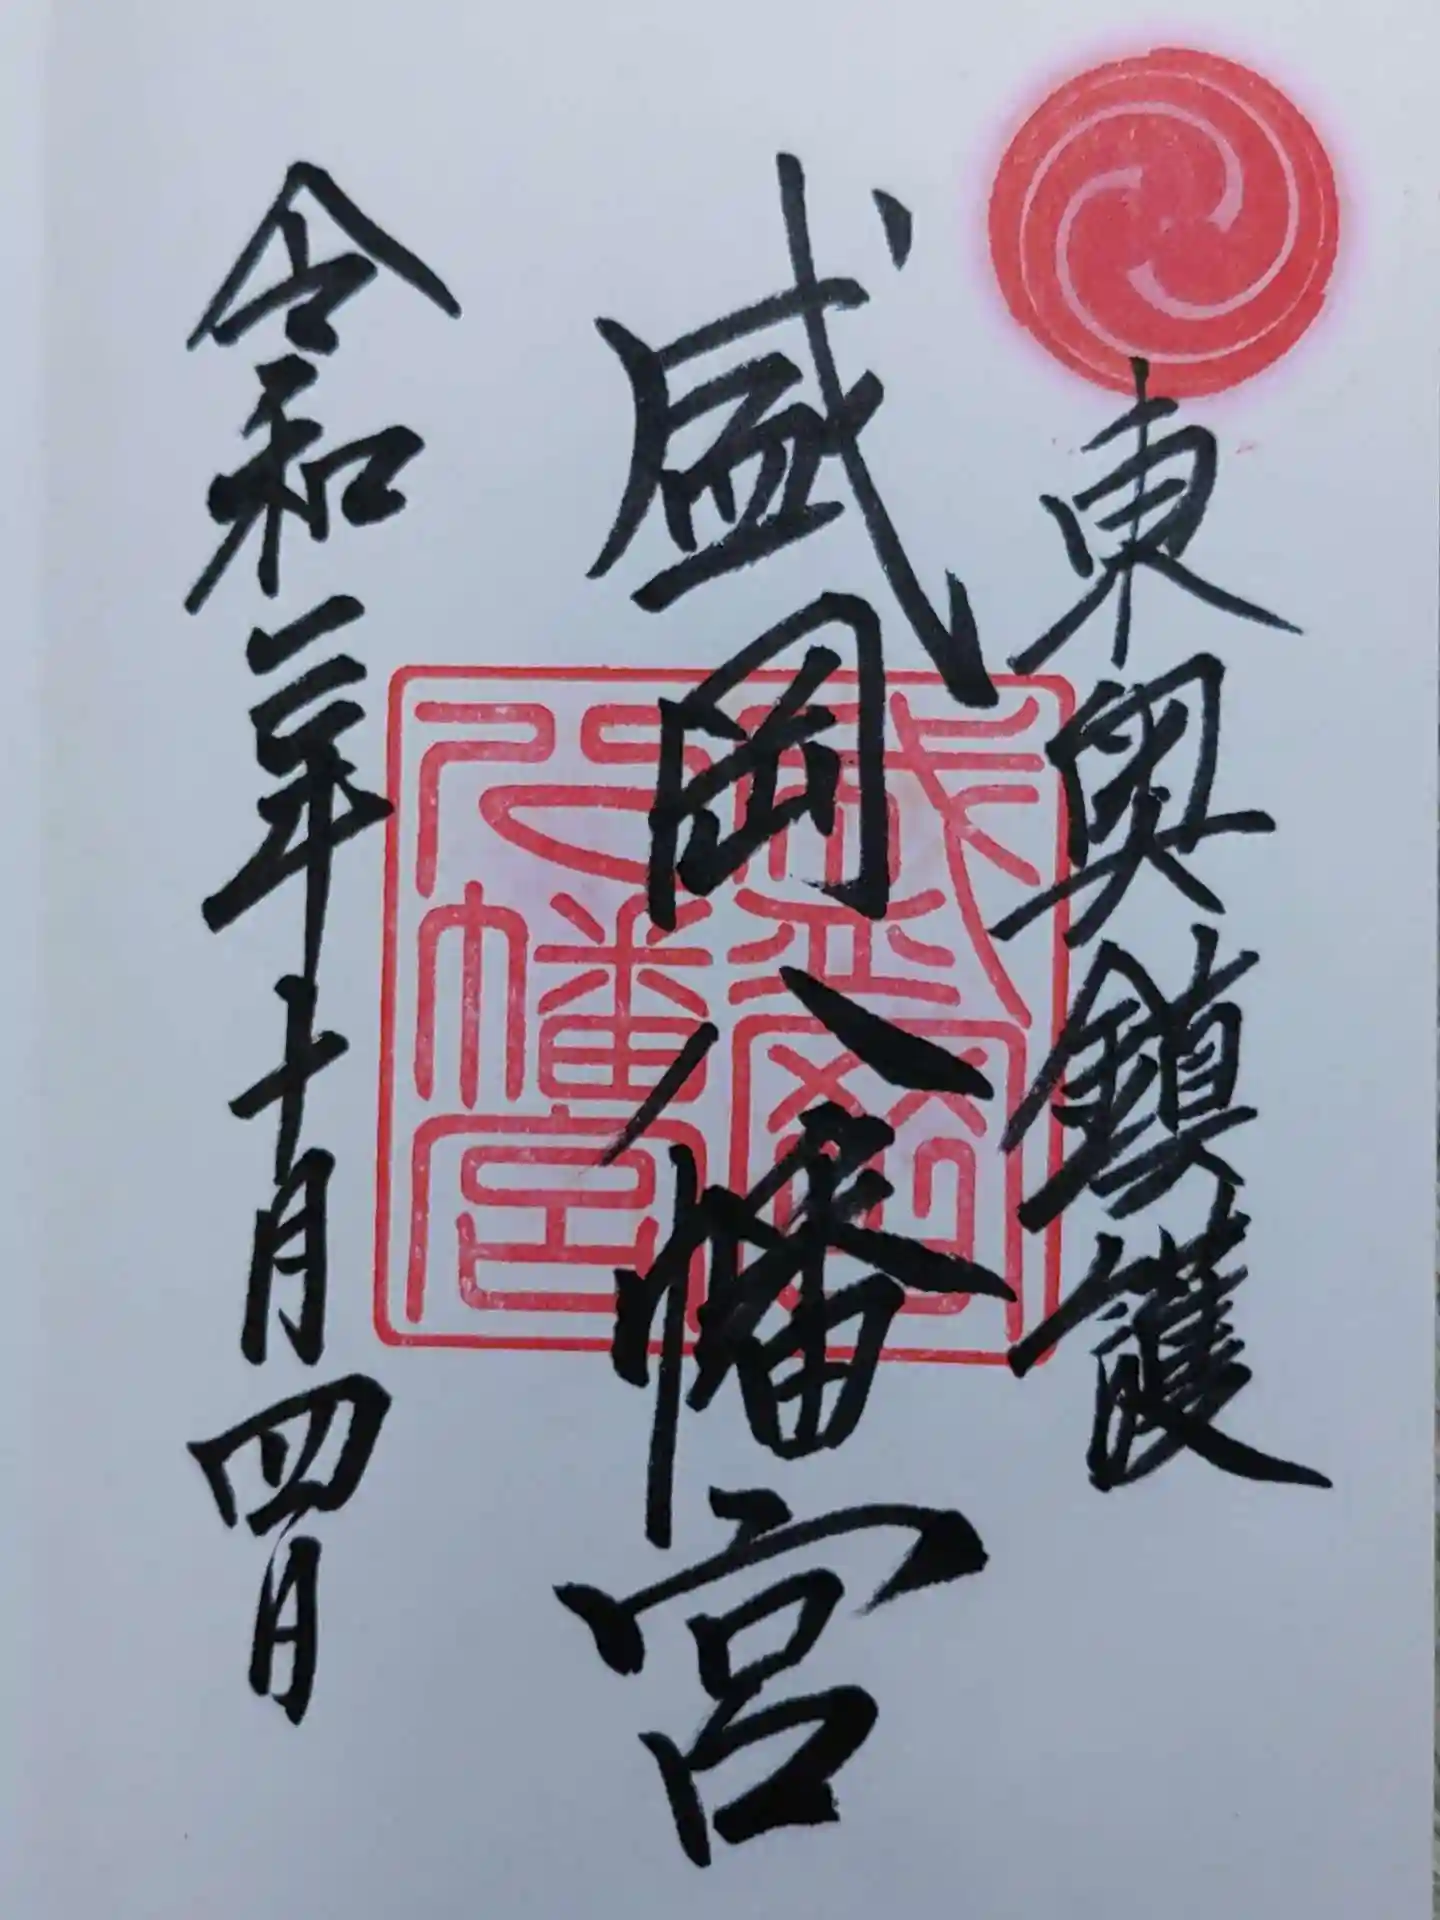 東奥鎮護
盛岡八幡宮
盛岡
八幡宮
令和二年十月四日